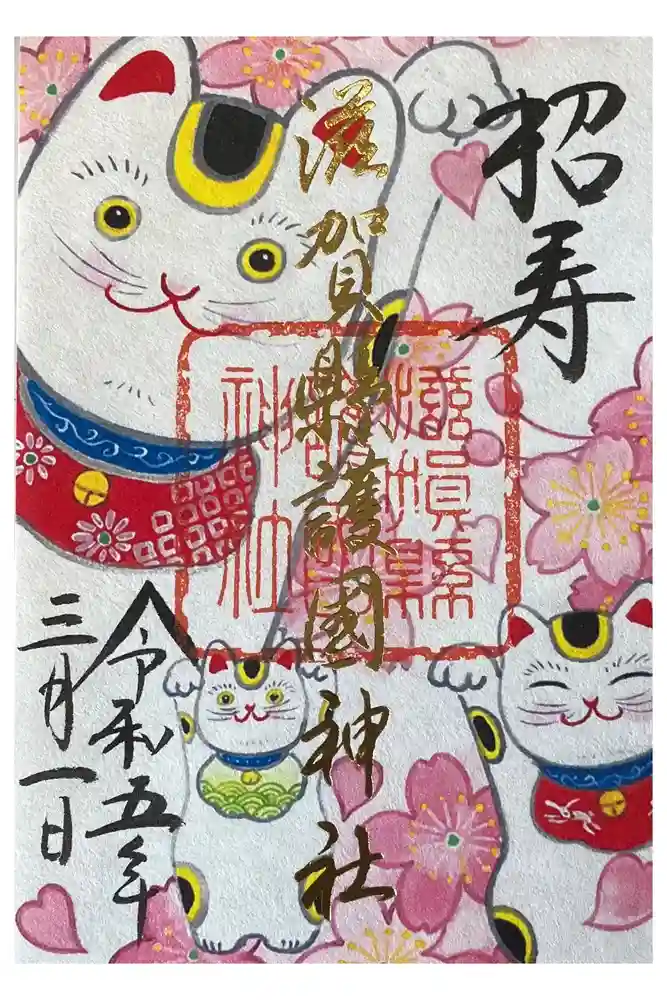 招寿
滋賀縣護國神社
滋賀縣
護國
神社
令和五年
三月一日